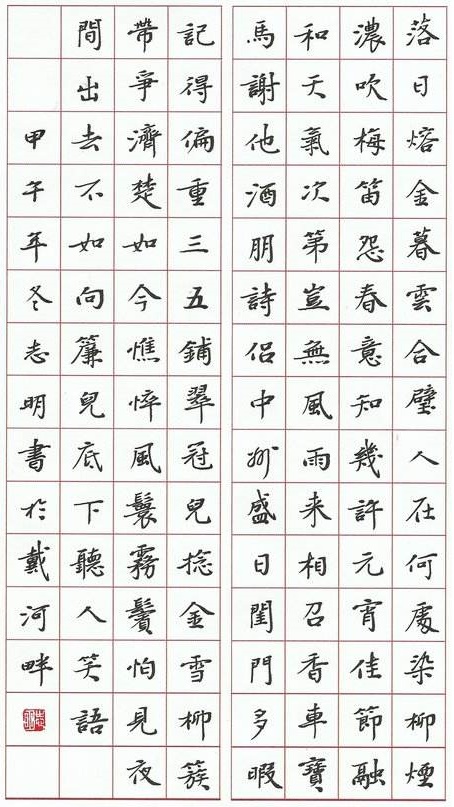 落日熔金暮雲合璧人在何處染柳煙
濃吹梅笛怨春意知幾許元宵佳節融
和天氣次第豈無風雨来相召香車寶
馬謝他酒朋詩侶中州盛日閨門多暇
記得偏重三五鋪翠冠兒捻金雪柳簇
帶爭濟楚如今憔悴風鬟霧鬢怕見夜
間出去不如向簾兒底下聽人笑語
甲午年冬志明書於戴河畔